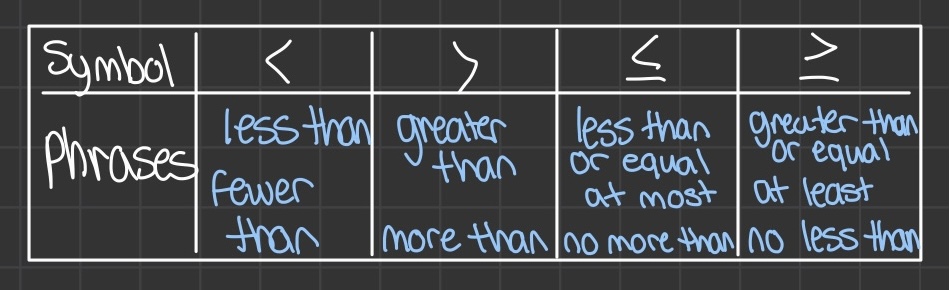 Symbol < > ≤ ≥
Phrases
less than
fewer
than
greater
than
more than
less than
or equal
at most
no more than
greater than
or equal
at least
no less than